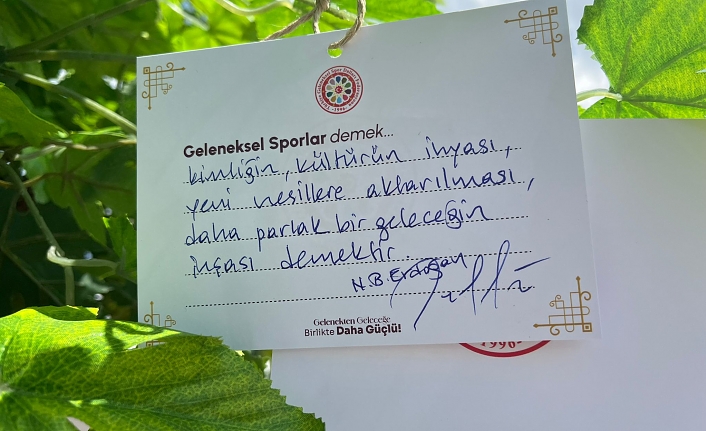 Geleneksel Sporlar demek...
kimliğin, kültürün ihyası,
yeni nesillere aktarılması,
daha parlak bir geleceğin
inşası demektir
N.B. Erdoğan
Gelenekten Geleceğe
Birlikte Daha Güçlü!
1996